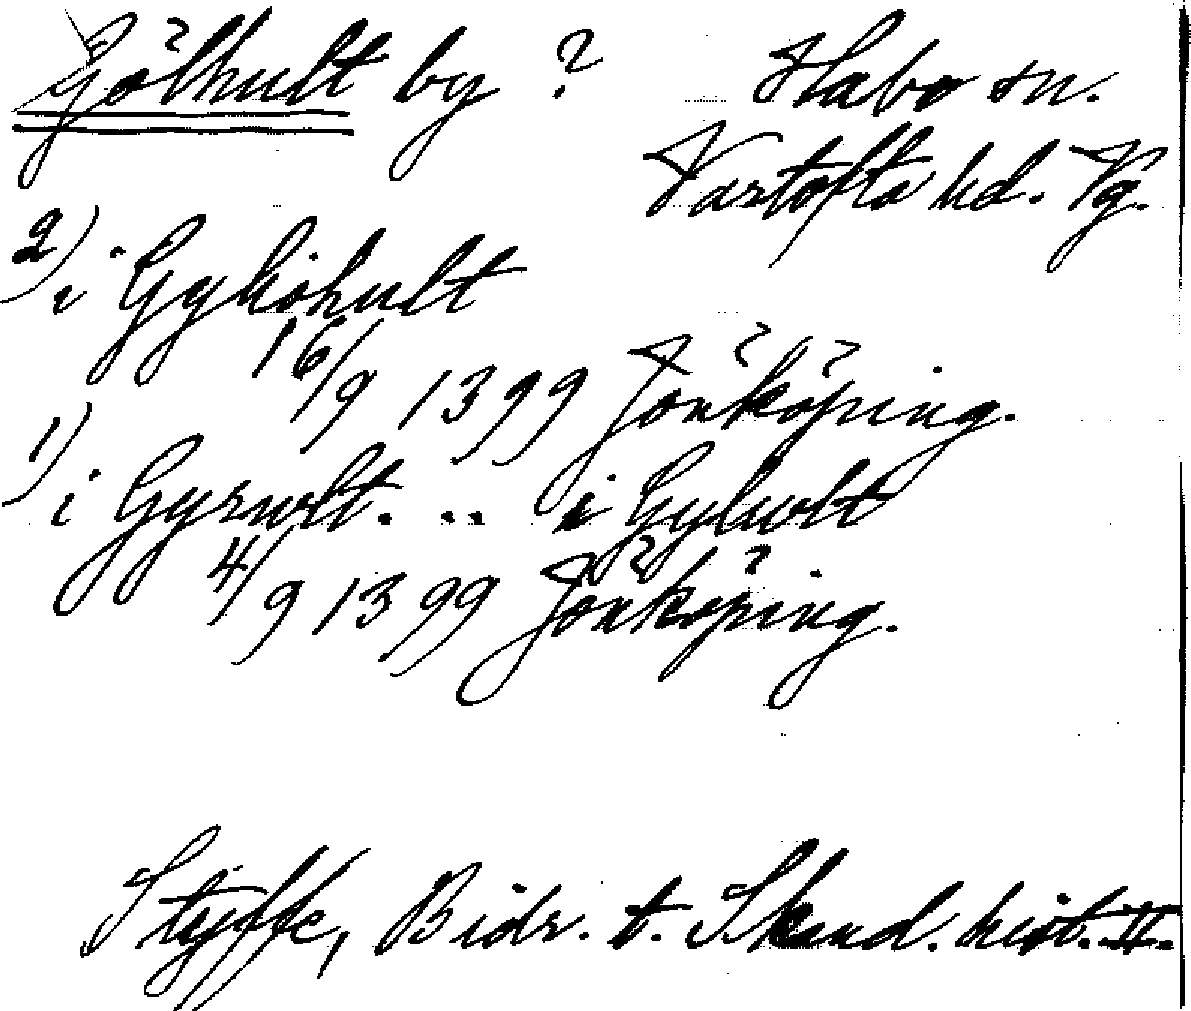 Gölhult by ? Habo sn.
Vartofta hd. Vg.
2) i Gyliohult
16/9 1399 Jönköping.
1) i Gyrwlt. . . i Gylwlt
4/9 1399 Jönköping.
Styffe, Bidr. t. Skand. hist. II.